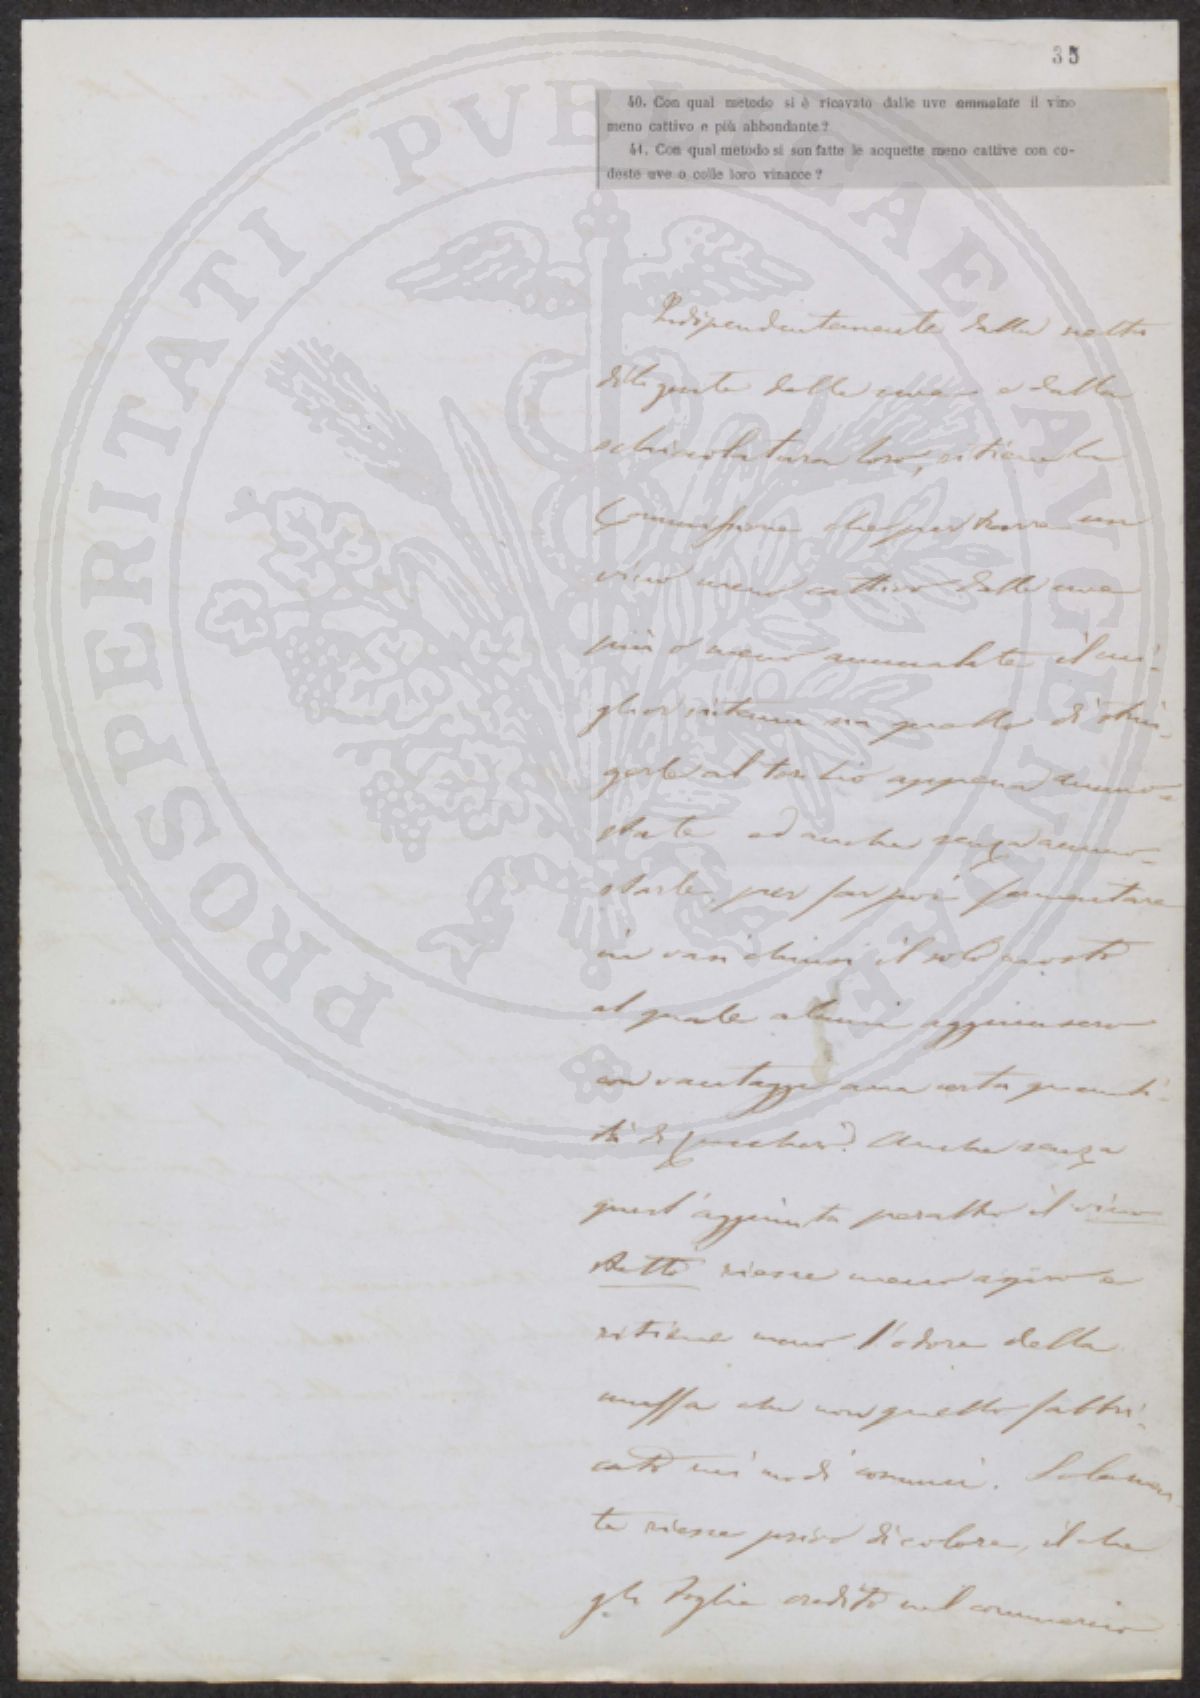 35
40. Con qual metodo si è ricavato dalle uve ammalate il vino
meno cattivo e più abbondante?
41. Con qual metodo si son fatte le acquette meno cattive con co-
deste uve o colle loro vinacce?
PROSPERITATI PVBLICAE AVGENDAE
Indipendentemente dalla scelta
diligente delle uve e dalla
loro, ritiene la
Commissione che per trarre un
vino meno cattivo dalle uve
più o meno ammalate il mi-
glior sistema sia quello di strin-
gerle al torchio appena ammo-
state ed anche senza ammo-
starle per far poi fermentare
in vasi chiusi il solo mosto
al quale alcuni aggiunsero
con vantaggio una certa quanti-
tà di zucchero. Anche senza
quest'aggiunta peraltro il vino
stretto riesce meno agro e
ritiene meno l'odore della
muffa che non quello fabbri-
cato nei modi comuni. Solamen-
te riesce privo di colore, il che
gli toglie credito nel commercio